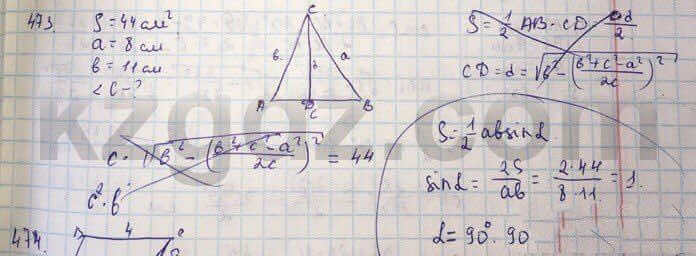 473. S = 44 см²
a = 8 см
b = 11 см
<C - ?
C
b d a
A D B
c
S = 1/2 AB · CD
CD = d = √(b² - ((b² + c² - a²)/2c)²)
c · √(b² - ((b² + c² - a²)/2c)²) = 44
c² · b
S = 1/2 ab sin α
sin α = 2S/ab = 2·44/8·11 = 1.
α = 90°. 90
474. 4
kzgdz.com